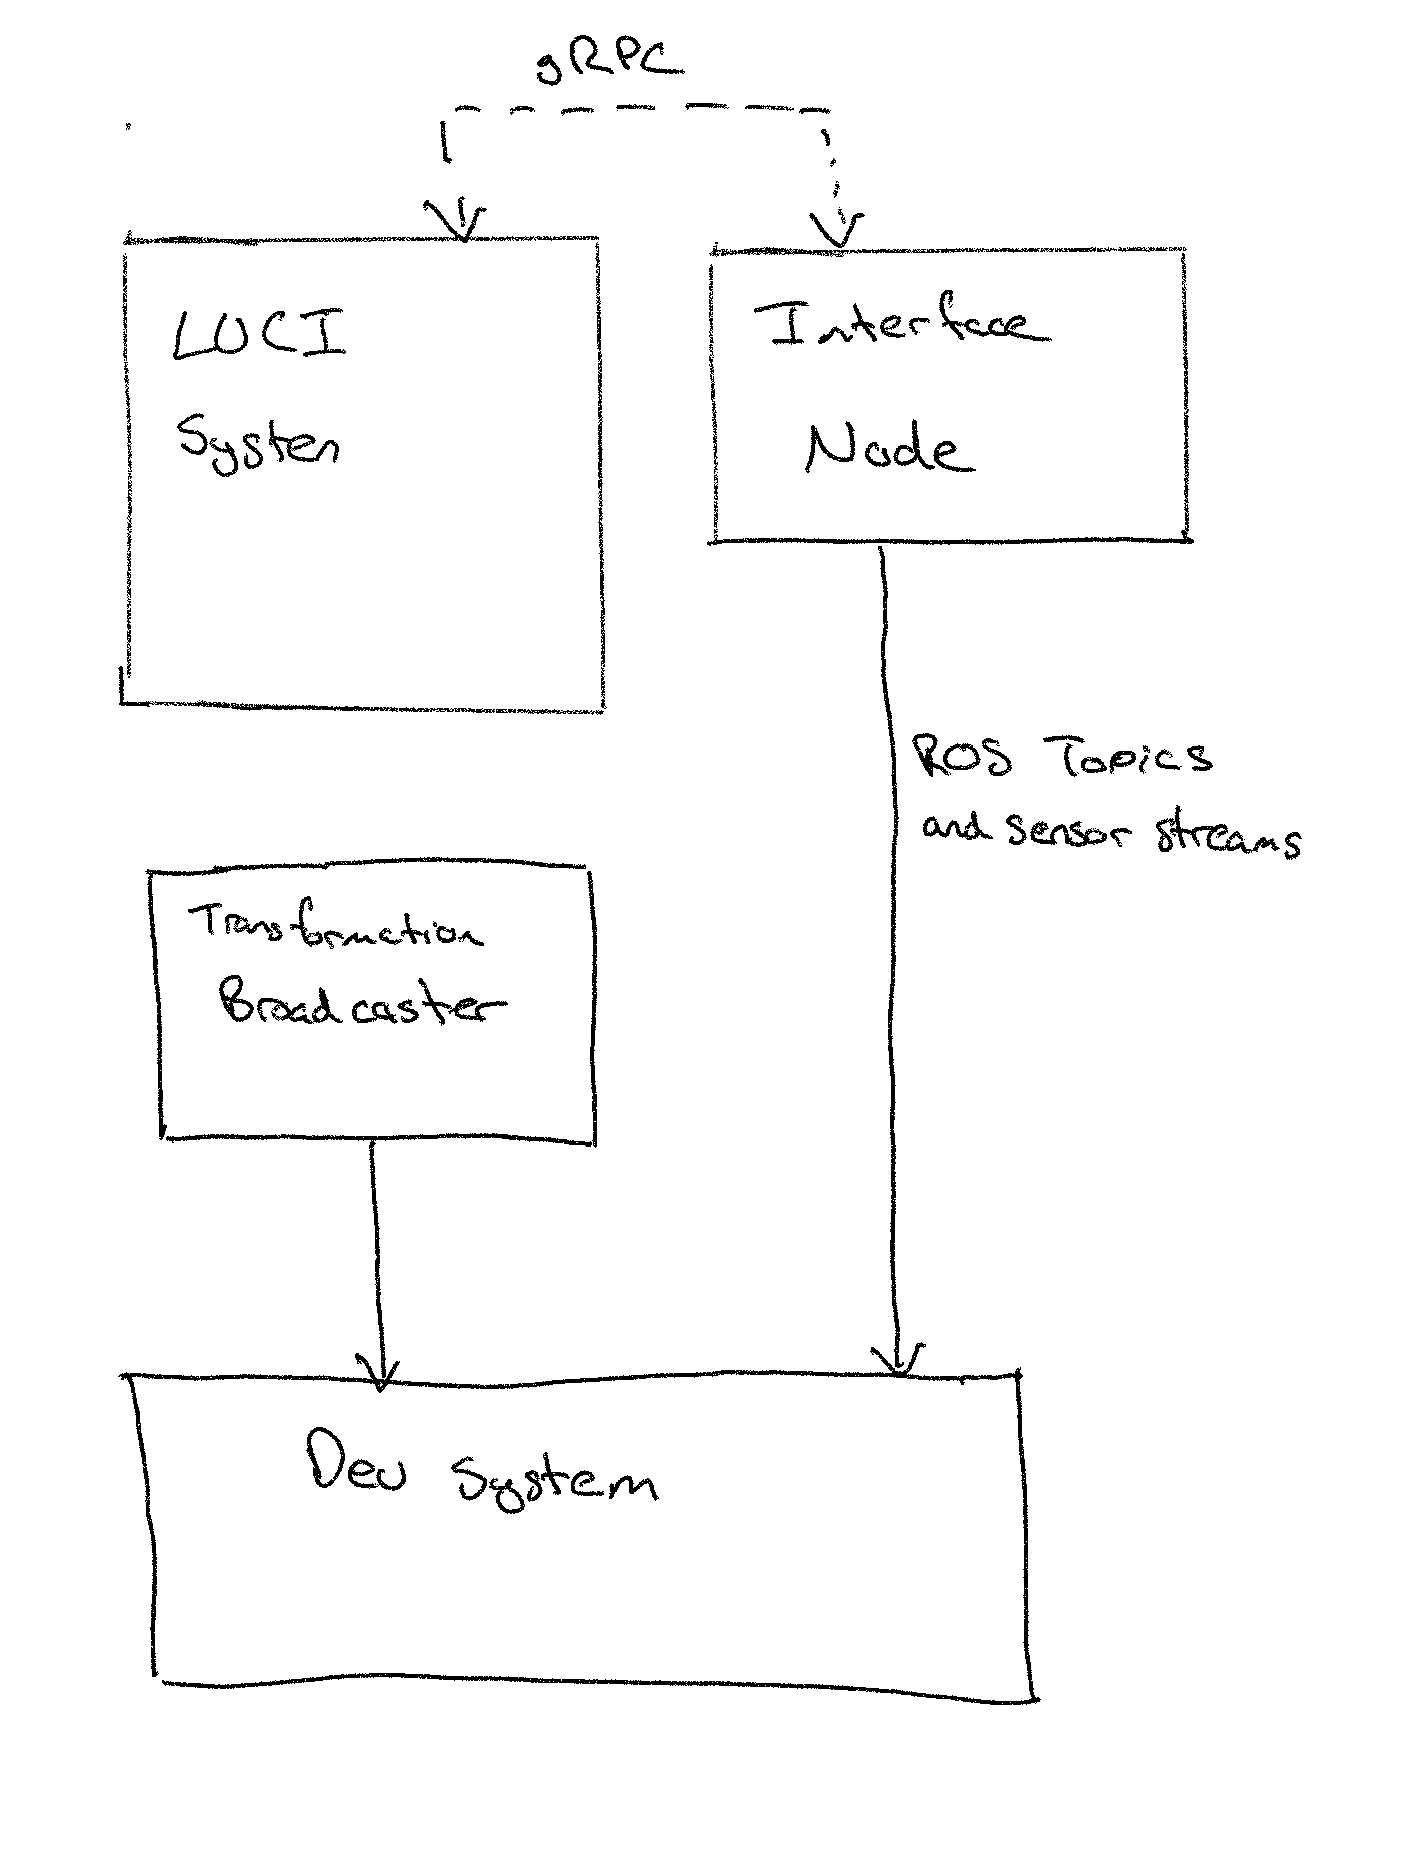 gRPC
LUCI
System
Interface
Node
ROS Topics
and sensor streams
Transformation
Broadcaster
Dev System